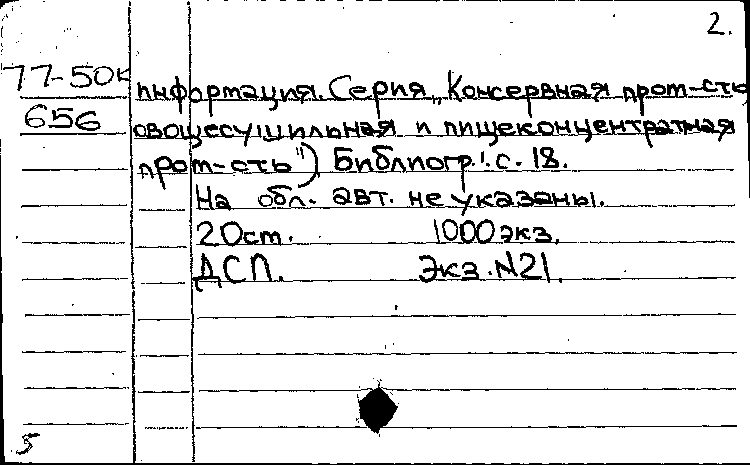 2.
77-50к
656
информация. Серия „Консервная пром-сть
овощесушильная и пищеконцентратная
пром-сть"). Библиогр.: с. 18.
На обл. авт. не указаны.
20 ст. 1000 экз.
ДСП. Экз. N21.
5